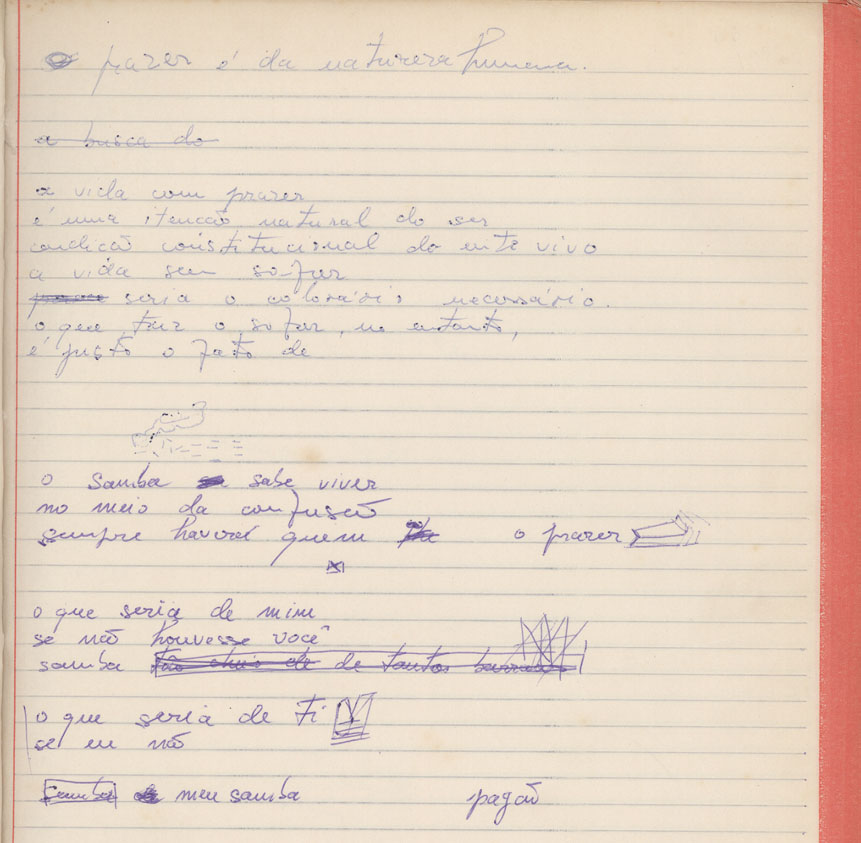 o prazer é da natureza humana.
a busca do
a vida com prazer
é uma itenção natural do ser
condição constitucional do ente vivo
a vida sem sofrer
seria o colorário necessário.
o que faz o sofrer, no entanto,
é justo o fato de
o samba sabe viver
no meio da confusão
sempre haverá quem o prazer
o que seria de mim
se não houvesse você
samba tão cheio de de tantos
o que seria de ti
se eu não
samba meu samba pagão